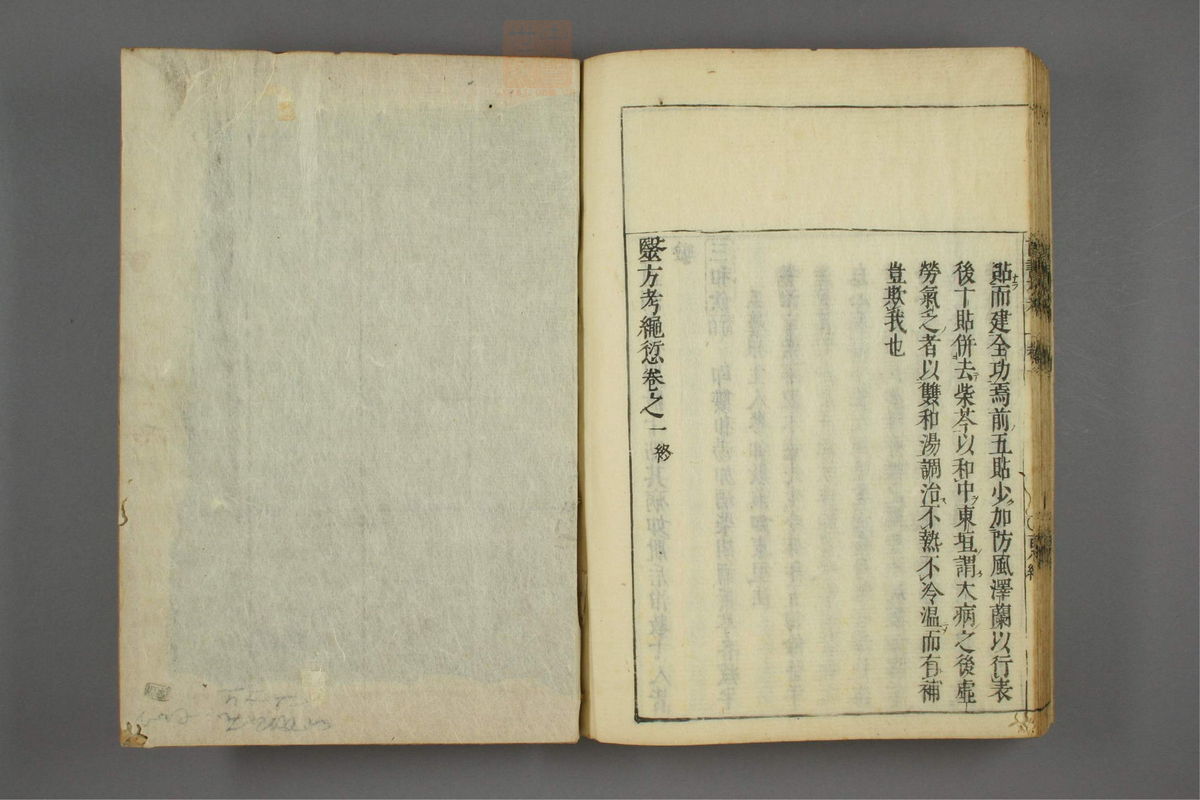 貼而建全功焉前五貼少加防風澤蘭以行表
後十貼併去柴芩以和中東垣謂大病之後虛
勞氣乏者以雙和湯調治不熱不冷温而有補
豈欺我也
醫方考繩愆卷之一終